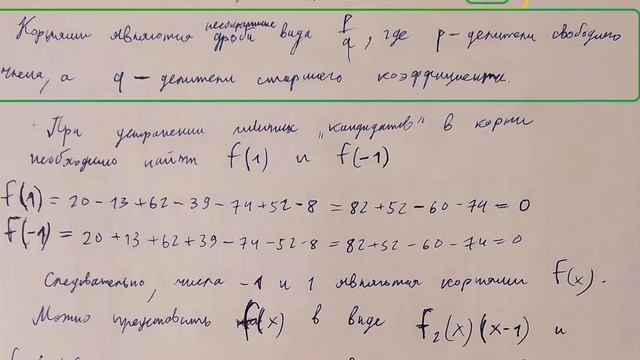 Корнями являются несократимые дроби вида p/q, где p - делители свободного
члена, а q - делители старшего коэффициента.
При устранении лишних "кандидатов" в корни
необходимо найти f(1) и f(-1)
f(1) = 20 - 13 + 62 - 39 - 74 + 52 - 8 = 82 + 52 - 60 - 74 = 0
f(-1) = 20 + 13 + 62 + 39 - 74 - 52 - 8 = 82 + 52 - 60 - 74 = 0
Следовательно, числа -1 и 1 являются корнями f(x).
Можно представить f(x) в виде f₂(x)(x-1) и